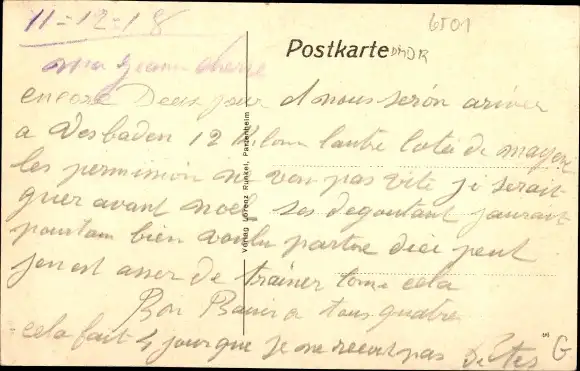 11-12-18
6501
Postkarte
ma chere
encore Deux jour et nous serón ariver
a Vesbaden 12 Kilom lautre coté de mayenc
les permision ne von pas vite je serait
guer avant noel ses degoutant jaurait
pourtan bien voulu partire dici peut
jen est asser de trainer tome cela
Bon Baiser a tous quatre
cela fait 4 jour que je ne recoit pas de tes
G
Verlag Lorenz Runkel, Partenheim